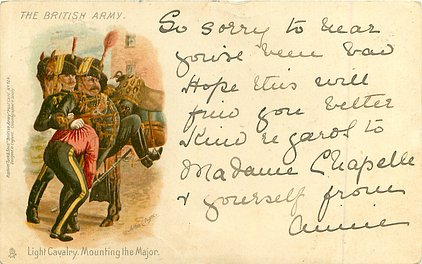 THE BRITISH ARMY.
So sorry to hear
you've been bad
Hope this will
find you better
Kind regards to
Madame Chapelle
& yourself from
Annie
Light Cavalry. Mounting the Major.